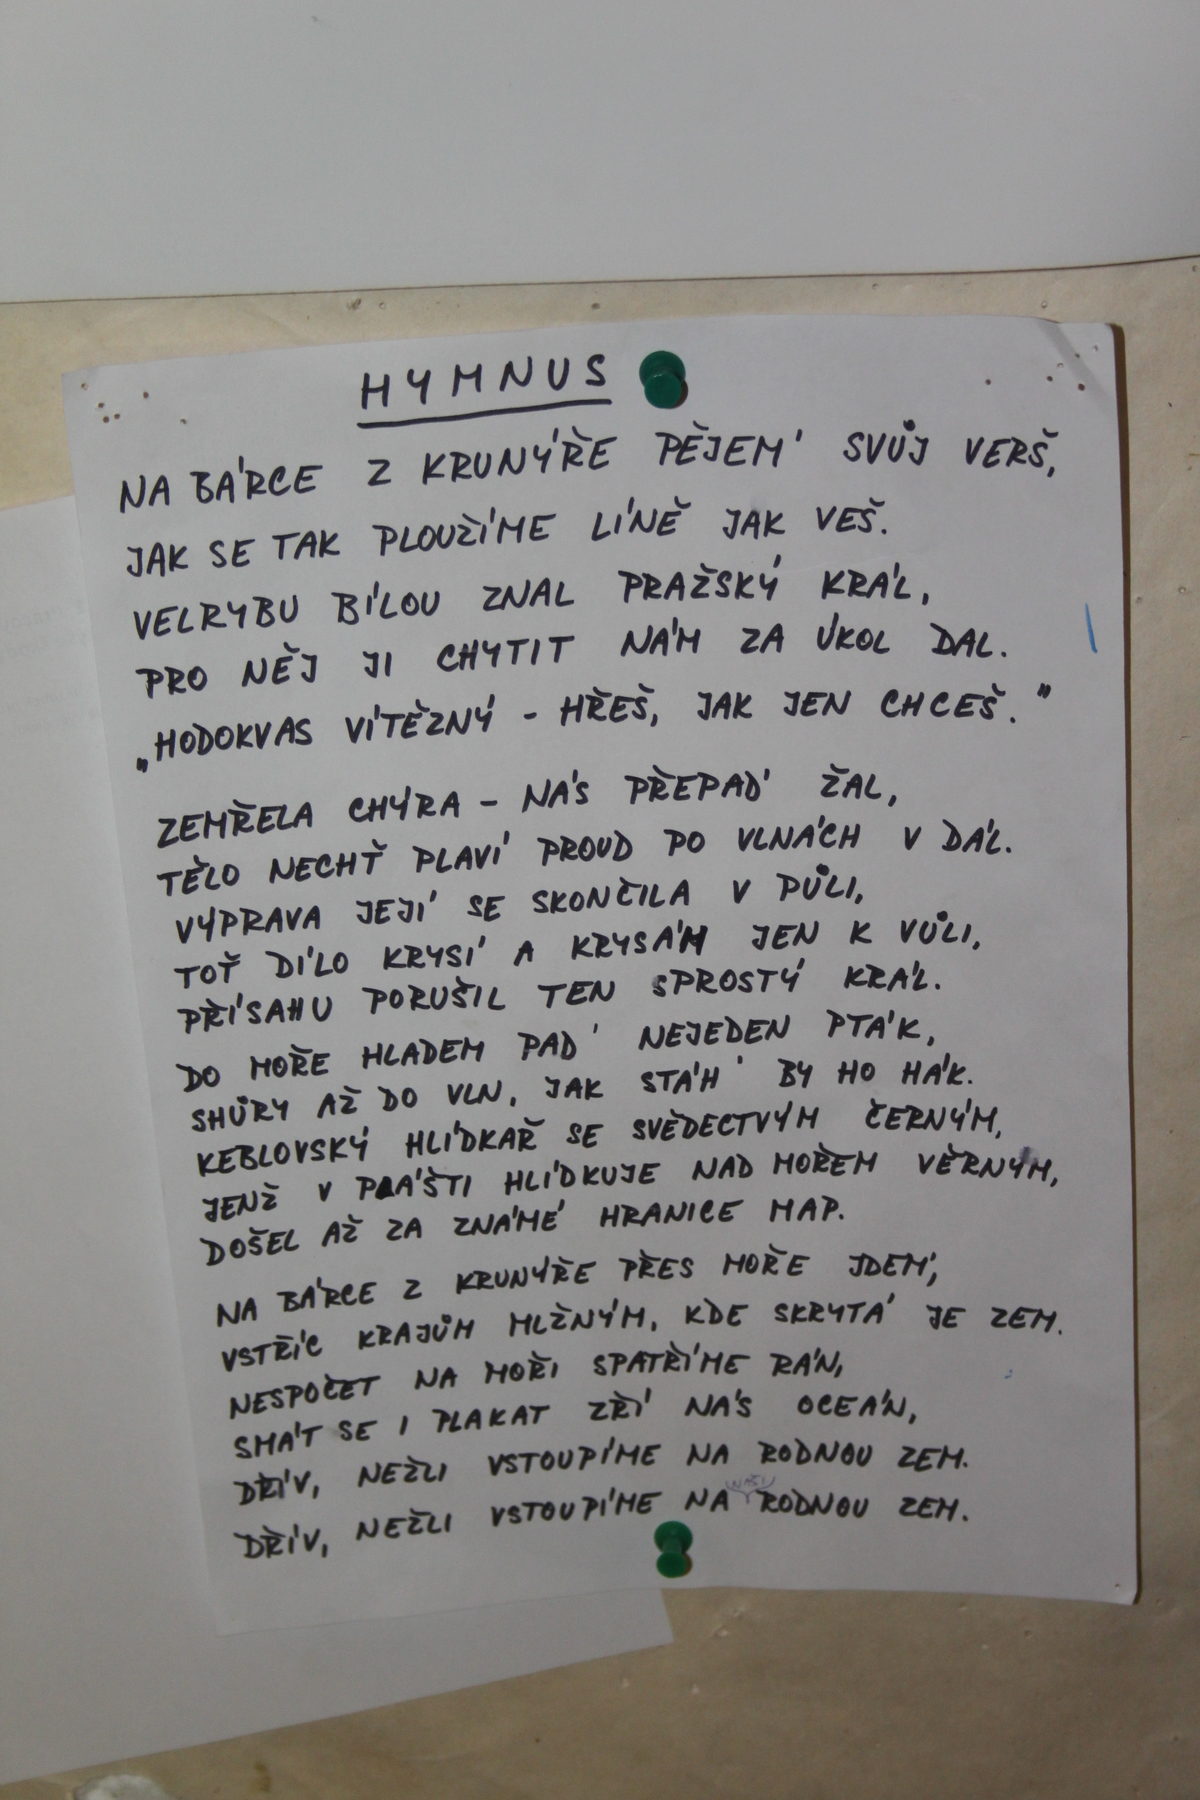 HYMNUS
NA BÁRCE Z KRUNÝŘE PĚJEM' SVŮJ VERŠ,
JAK SE TAK PLOUŽÍME LÍNĚ JAK VEŠ.
VELRYBU BÍLOU ZNAL PRAŽSKÝ KRÁL,
PRO NĚJ JI CHYTIT NÁM ZA ÚKOL DAL.
„HODOKVAS VÍTĚZNÝ - HŘEŠ, JAK JEN CHCEŠ."
ZEMŘELA CHÝRA - NÁS PŘEPAD' ŽAL,
TĚLO NECHŤ PLAVÍ PROUD PO VLNÁCH V DÁL.
VÝPRAVA JEJÍ SE SKONČILA V PŮLI,
TOŤ DÍLO KRYSÍ A KRYSÁM JEN K VŮLI,
PŘÍSAHU PORUŠIL TEN SPROSTÝ KRÁL.
DO MOŘE HLADEM PAD' NEJEDEN PTÁK,
SHŮRY AŽ DO VLN, JAK STÁH' BY HO HÁK.
KEBLOVSKÝ HLÍDKAŘ SE SVĚDECTVÝM ČERNÝM,
JENŽ V PLÁŠTI HLÍDKUJE NAD MOŘEM VĚRNÝM,
DOŠEL AŽ ZA ZNÁMÉ HRANICE MAP.
NA BÁRCE Z KRUNÝŘE PŘES MOŘE JDEM',
VSTŘÍC KRAJŮM MLŽNÝM, KDE SKRYTÁ JE ZEM.
NESPOČET NA MOŘI SPATŘÍME RÁN,
SMÁT SE I PLAKAT ZŘÍ NÁS OCEÁN,
DŘÍV, NEŽLI VSTOUPÍME NA RODNOU ZEM.
NAŠI
DŘÍV, NEŽLI VSTOUPÍME NA RODNOU ZEM.